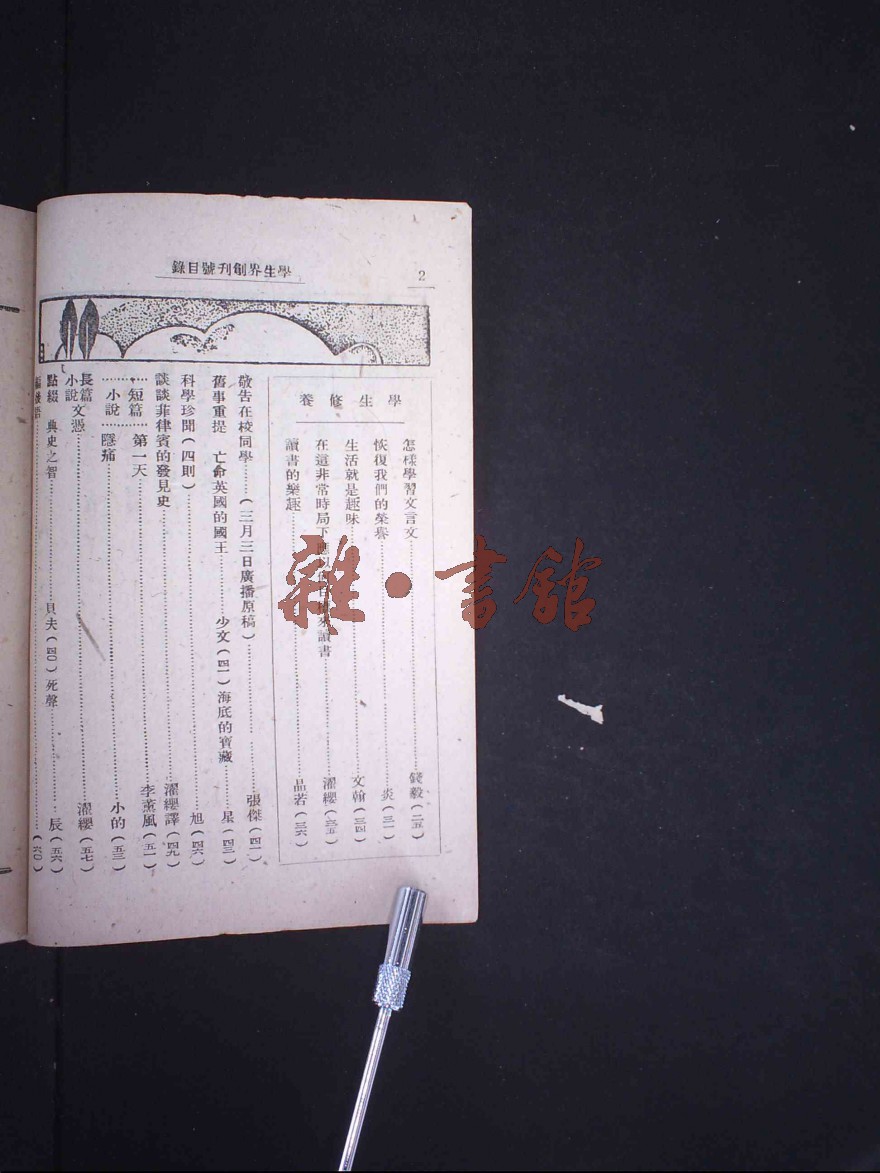 2
學生界創刊號目錄
學生修養
怎樣學習文言文 錢毅(二五)
恢復我們的榮譽 炎(三一)
生活就是趣味 文翰(三四)
在這非常時局下應 來讀書 濯纓(三五)
讀書的樂趣 品若(三六)
敬告在校同學(三月三日廣播原稿) 張傑(四一)
舊事重提 亡命英國的國王 少文(四一) 海底的寶藏 星(四三)
科學珍聞(四則) 旭(四六)
談談菲律賓的發見史 濯纓譯(四九)
短篇小說 第一天 李薰風(五一)
隱痛 小的(五三)
長篇小說 文憑 濯纓(五七)
點綴 典史之智 貝夫(四〇) 死聲 辰(五六)
(六〇)
雜·書館